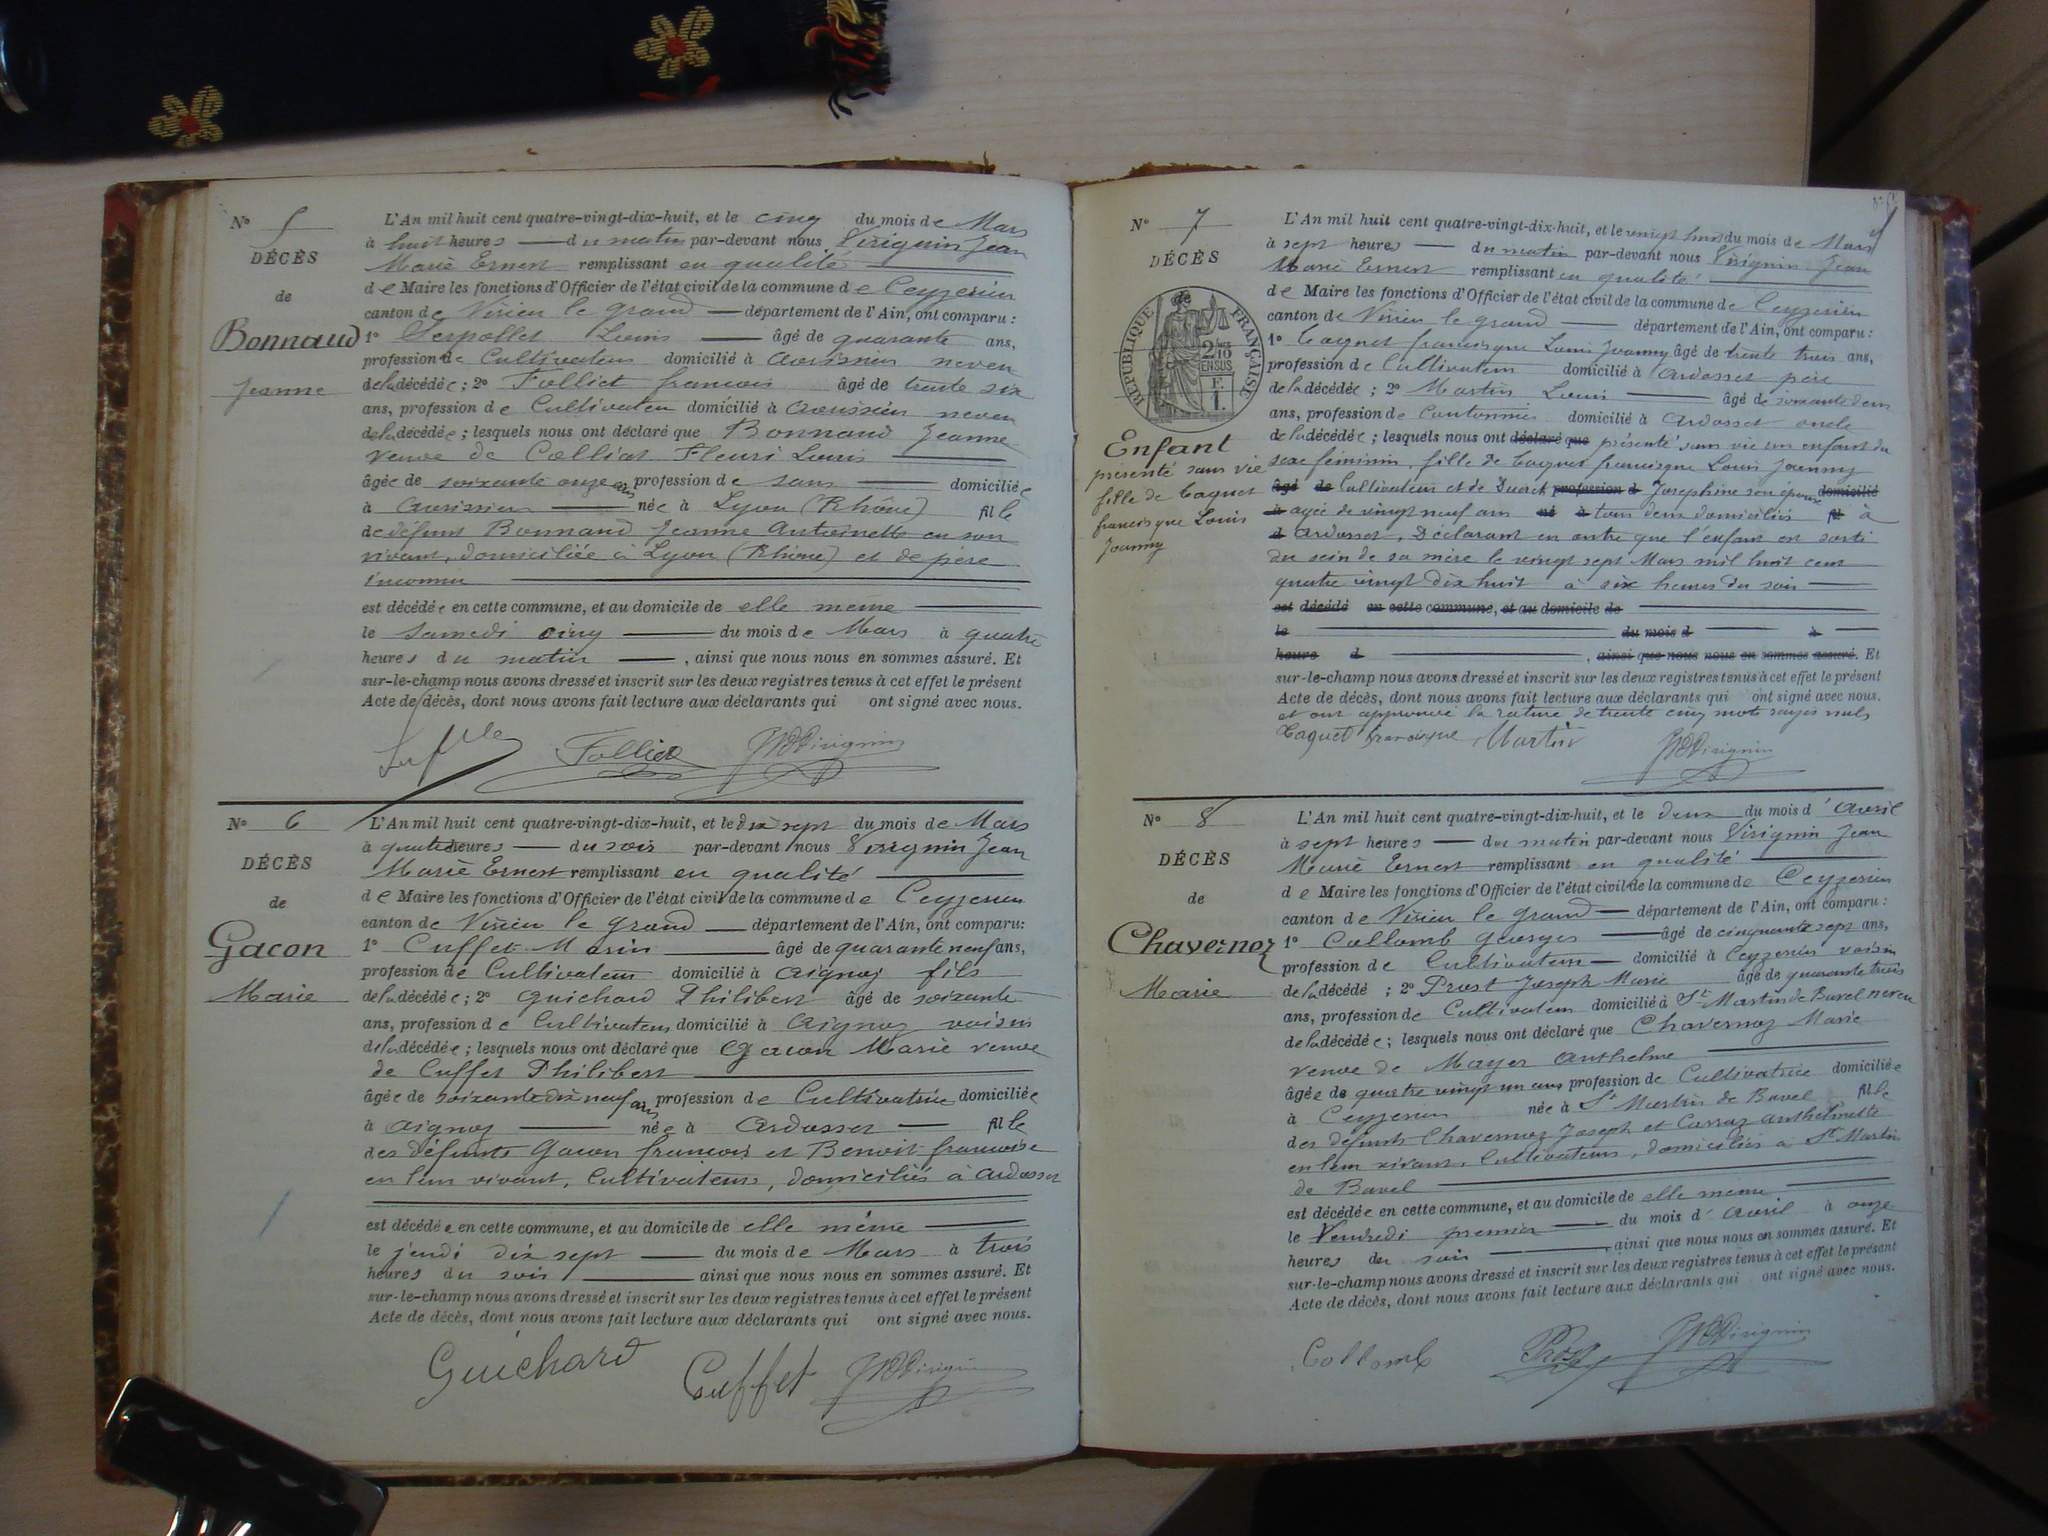 N° 5
DÉCÈS
de
Bonnaud
Jeanne
L'An mil huit cent quatre-vingt-dix-huit, et le cinq du mois de Mars
à huit heures du matin par-devant nous Virignin Jean
Marie Ernest remplissant en qualité
de Maire les fonctions d'Officier de l'état civil de la commune de Ceyzerieu
canton de Virieu le grand département de l'Ain, ont comparu :
1° Serpollet Louis âgé de quarante ans,
profession de Cultivateur domicilié à Avrissieu neveu
de la décédée ; 2° Folliet francois âgé de trente six
ans, profession de Cultivateur domicilié à neveu
de la décédée ; lesquels nous ont déclaré que Bonnaud Jeanne
veuve de Colliat Fleuri Louis
âgée de soixante onze ans profession de sans domiciliée
à Avrissieu née à Lyon (Rhône) fille
de défunt Bonnaud Jeanne Antoinette en son
vivant, domiciliée à Lyon (Rhône) et de père
inconnu
est décédée en cette commune, et au domicile de elle meme
le Samedi cinq du mois de Mars à quatre
heures du matin , ainsi que nous nous en sommes assuré. Et
sur-le-champ nous avons dressé et inscrit sur les deux registres tenus à cet effet le présent
Acte de décès, dont nous avons fait lecture aux déclarants qui ont signé avec nous.
Folliet Virignin
N° 6
DÉCÈS
de
Gacon
Marie
L'An mil huit cent quatre-vingt-dix-huit, et le dix sept du mois de Mars
à quatre heures du soir par-devant nous Virignin Jean
Marie Ernest remplissant en qualité
de Maire les fonctions d'Officier de l'état civil de la commune de Ceyzerieu
canton de Virieu le grand département de l'Ain, ont comparu:
1° Cuffet Marin âgé de quarante neuf ans,
profession de Cultivateur domicilié à Aignoz fils
de la décédée ; 2° Guichard Philibert âgé de soixante
ans, profession de Cultivateur domicilié à Aignoz voisin
de la décédée ; lesquels nous ont déclaré que Gacon Marie veuve
de Cuffet Philibert
âgée de soixante dix neuf ans profession de Cultivatrice domiciliée
à Aignoz née à Ardosset fille
des défunts Gacon francois et Benoit francoise
en leur vivant, Cultivateurs, domiciliés à Ardosset
est décédée en cette commune, et au domicile de elle même
le jeudi dix sept du mois de Mars à trois
heures du soir ainsi que nous nous en sommes assuré. Et
sur-le-champ nous avons dressé et inscrit sur les deux registres tenus à cet effet le présent
Acte de décès, dont nous avons fait lecture aux déclarants qui ont signé avec nous.
Guichard Cuffet Virignin
N° 7
DÉCÈS
de
RÉPUBLIQUE FRANÇAISE
2/10
EN SUS
Enfant
présenté sans vie
fille de Caquet
francisque Louis
Joanny
L'An mil huit cent quatre-vingt-dix-huit, et le vingt huit du mois de Mars
à sept heures du matin par-devant nous Virignin Jean
Marie Ernest remplissant en qualité
de Maire les fonctions d'Officier de l'état civil de la commune de Ceyzerieu
canton de Virieu le grand département de l'Ain, ont comparu :
1° Caquet francisque Louis Joanny âgé de trente trois ans,
profession de Cultivateur domicilié à Ardosset père
de la décédée ; 2° Martin Louis âgé de soixante deux
ans, profession de Cantonnier domicilié à Ardosset oncle
de la décédée ; lesquels nous ont déclaré que présenté sans vie un enfant du
sexe féminin, fille de Caquet francisque Louis Joanny
âgé de Cultivateur et de profession d Josephine son épouse domicilié
à agée de vingt neuf ans né à tous deux domiciliés fil à
d Ardosset, Déclarant en outre que l'enfant est sorti
du sein de sa mère le vingt sept Mars mil huit cent
quatre vingt dix huit à six heures du soir
est décédé en cette commune, et au domicile de
le du mois d à
heure d , ainsi que nous nous en sommes assuré. Et
sur-le-champ nous avons dressé et inscrit sur les deux registres tenus à cet effet le présent
Acte de décès, dont nous avons fait lecture aux déclarants qui ont signé avec nous.
et ont approuvé la rature de trente cinq mots rayés nuls
Caquet francisque Martin Virignin
N° 8
DÉCÈS
de
Chavernoz
Marie
L'An mil huit cent quatre-vingt-dix-huit, et le deux du mois d'Avril
à sept heures du matin par-devant nous Virignin Jean
Marie Ernest remplissant en qualité
de Maire les fonctions d'Officier de l'état civil de la commune de Ceyzerieu
canton de Virieu le grand département de l'Ain, ont comparu :
1° Collomb Georges âgé de cinquante sept ans,
profession de Cultivateur domicilié à Ceyzerieu voisin
de la décédé ; 2° Prost Joseph Marie âgé de quarante trois
ans, profession de Cultivateur domicilié à St Martin de Bavel neveu
de la décédée ; lesquels nous ont déclaré que Chavernoz Marie
veuve de Mayer Anthelme
âgée de quatre vingt un ans profession de Cultivatrice domiciliée
à Ceyzerieu née à St Martin de Bavel fille
des défunts Chavernoz Joseph et Carraz Anthelmette
en leur vivant, Cultivateurs, domiciliés à St Martin
de Bavel
est décédée en cette commune, et au domicile de elle meme
le Vendredi premier du mois d'Avril à onze
heures du soir , ainsi que nous nous en sommes assuré. Et
sur-le-champ nous avons dressé et inscrit sur les deux registres tenus à cet effet le présent
Acte de décès, dont nous avons fait lecture aux déclarants qui ont signé avec nous.
Collomb Prost Virignin